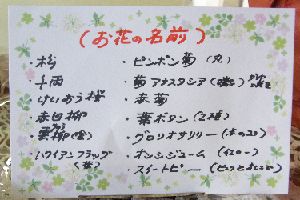 (お花の名前)
・松
・千両
・けいおう桜
・赤目柳
・雲柳(金)
・ハワイアンフラッグ
(葉)
・ピンポン菊(丸)
・菊アナスタシア
・寒菊
・葉ボタン(2種)
・グロリオサリリー
・オンシジューム(イエロー)
・スイートピー